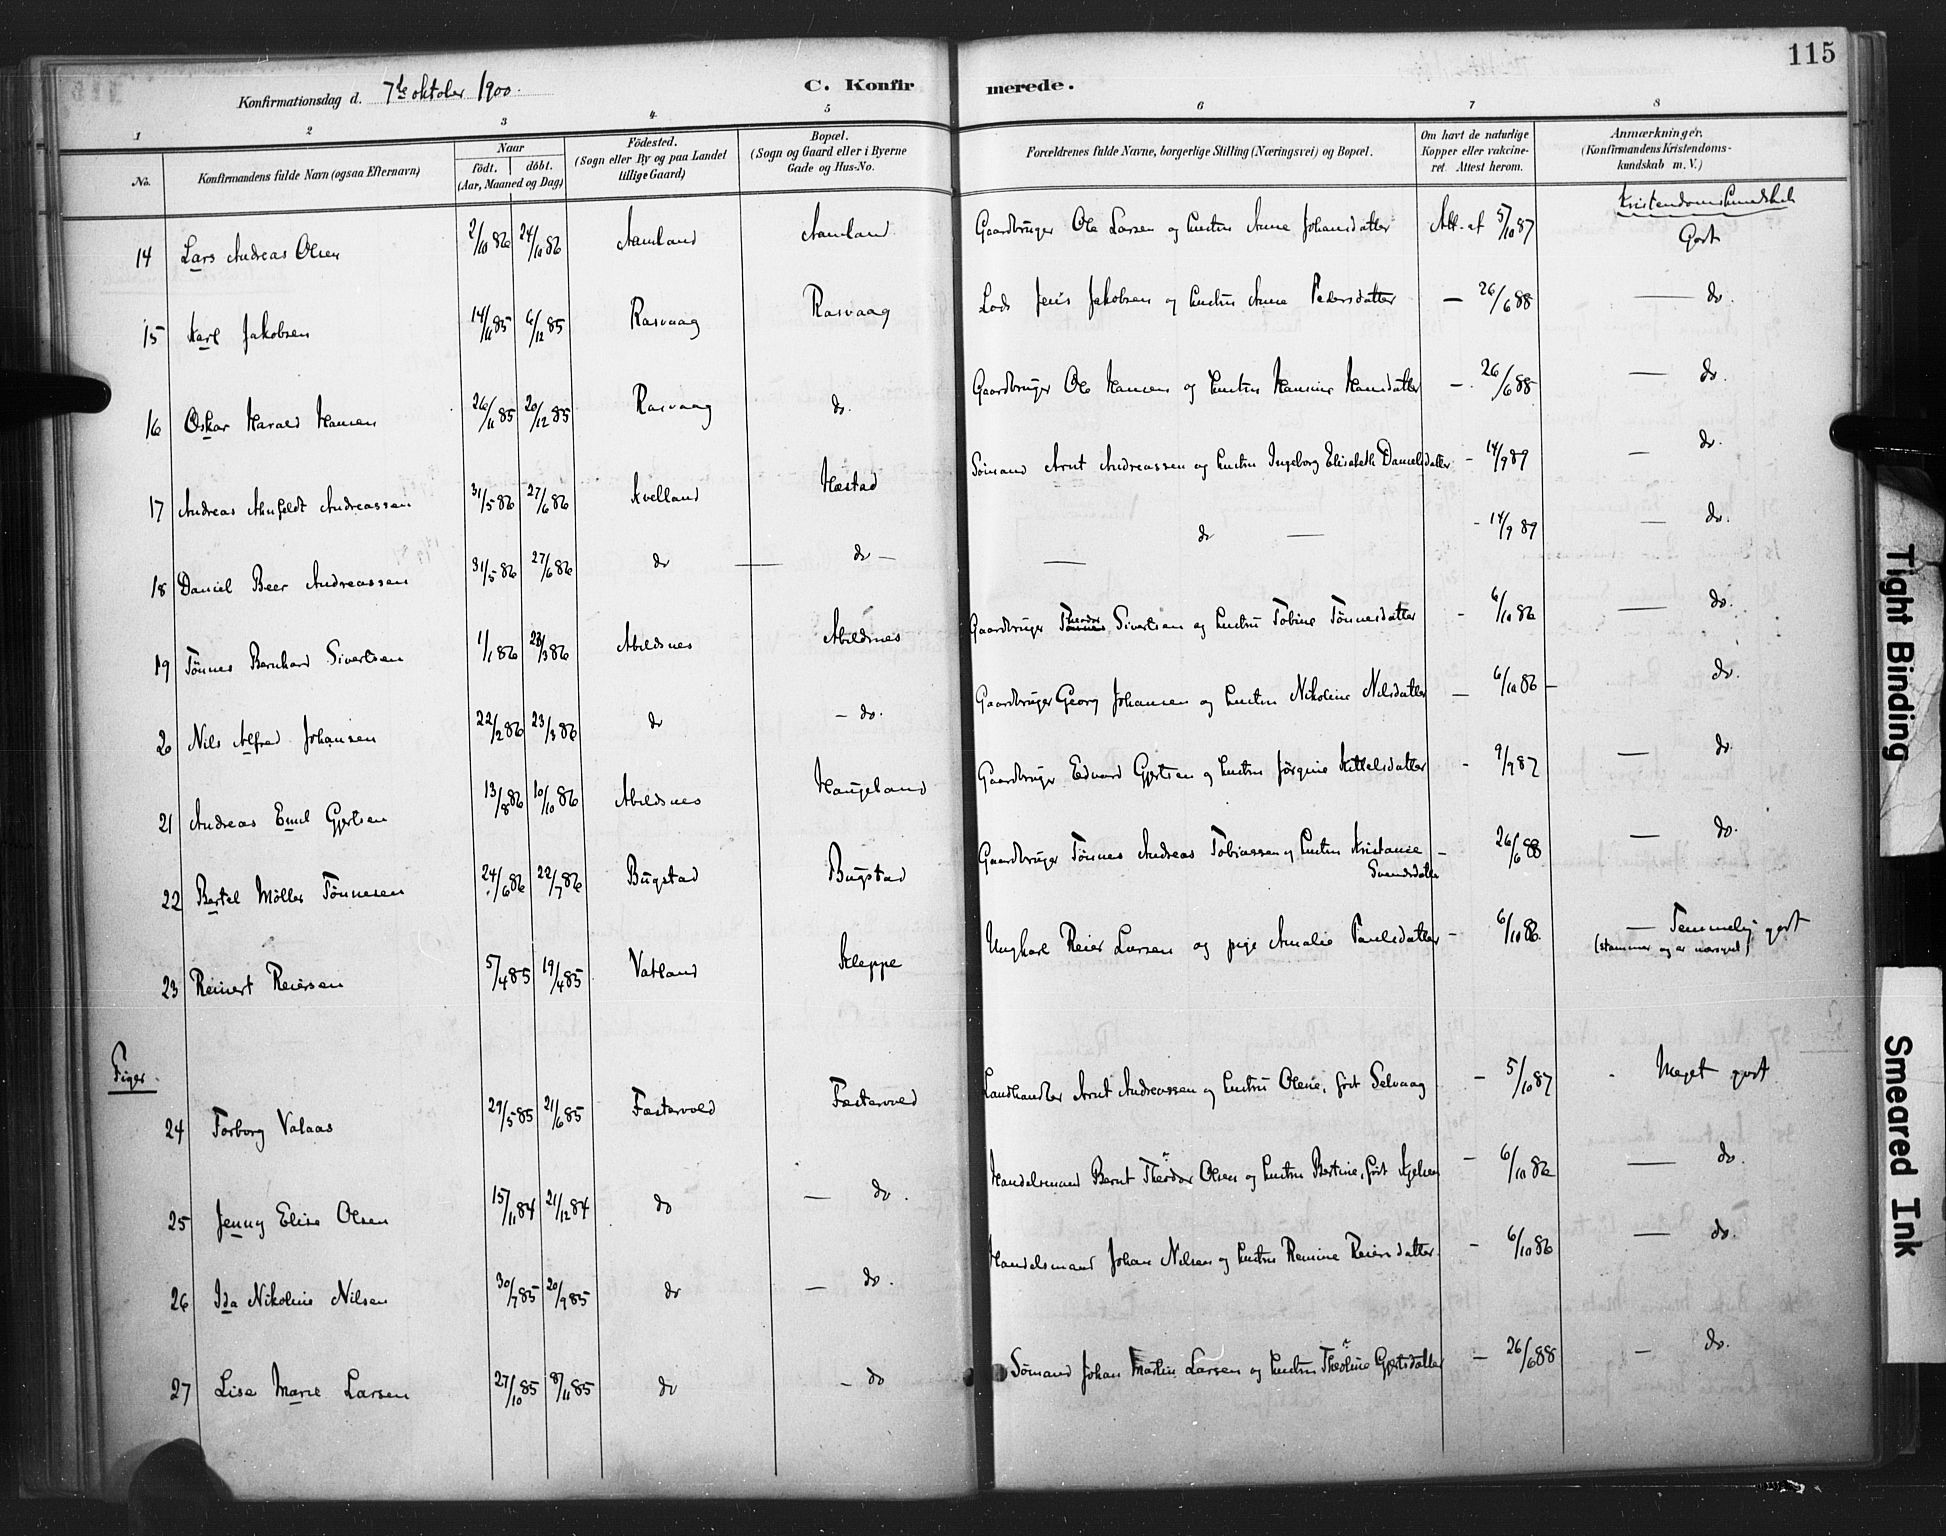 115
Konfirmationsdag d. 7de oktober 1900.
C. Konfirmerede.
1 2 3 4 5 6 7 8
No.
Konfirmandens fulde Navn (ogsaa Efternavn)
Naar
födt. döbt.
(Aar, Maaned og Dag)
Födested.
(Sogn eller By og paa Landet
tillige Gaard)
Bopæl.
(Sogn og Gaard eller i Byerne
Gade og Hus-No.
Forældrenes fulde Navne, borgerlige Stilling (Næringsvei) og Bopæl.
Om havt de naturlige
Kopper eller vakcine-
ret Attest herom.
Anmærkninger.
(Konfirmandens Kristendoms-
kundskab m. V.)
Kristendomskundskab
14 Lars Andreas Olsen 2/10 86 24/10 86 Aamland Aamland Gaardbruger Ole Larsen og hustru Anne Johansdatter Att. af 5/10 87 Godt
15 Karl Jakobsen 14/11 85 6/12 85 Rasvaag Rasvaag Lods Jens Jakobsen og hustru Anne Pedersdatter — 26/6 88 — do.
16 Oskar Harald Hansen 26/11 85 20/12 85 Rasvaag do. Gaardbruger Ole Hansen og hustru Hansine Hansdatter — 26/6 88 — do.
17 Andreas Anfeldt Andreassen 31/5 86 27/6 86 Kvelland Hæstad Sømand Arnt Andreassen og hustru Ingeborg Elisabeth Danielsdatter - 14/9 89 — do.
18 Daniel Beer Andreassen 31/5 86 27/6 86 do — do — — do — - 14/9 89 — do.
19 Tönnes Bernhard Sivertsen 1/1 86 28/3 86 Abildsnes Abildsnes Gaardbruger Theodor Sivertsen og hustru Tobine Tönnesdatter - 6/10 86 — do.
20 Nils Alfred Johansen 22/2 86 23/3 86 do — do. Gaardbruger Georg Johansen og hustru Nikoline Nilsdatter — 6/10 86 — do.
21 Andreas Emil Gjertsen 13/8 86 10/10 86 Abildsnes Haugeland Gaardbruger Edvard Gjertsen og hustru Jörgine Kittelsdatter - 9/9 87 — do.
22 Bertel Möller Tönnesen 24/6 86 22/7 86 Bugstad Bugstad Gaardbruger Tönnes Andreas Tobiassen og hustru Kristanie
Svendsdatter - 26/6 88 — do.
23 Reinert Reiersen 5/4 85 19/4 85 Vatland Kleppe Ungkarl Reier Larsen og pige Amalie Paulsdatter - 6/10 86. — Temmelig godt
(stammer og er nærsynet)
Piger.
24 Torborg Valaas 29/5 85 21/6 85 Fæstervold Fæstervold Landhandler Arnt Andreassen og hustru Olene, født Selvaag — 5/10 87 - Meget godt
25 Jenny Elise Olsen 15/11 84 21/12 84 do — do. Handelsmand Bernt Theodor Olsen og hustru Bertine, født - 6/10 86 — do.
26 Ida Nikoline Nilsen 30/7 85 20/9 85 do — do. Handelsmand Johan Nilsen og hustru Remine Reiersdatter. - 6/10 86 — do.
27 Lise Marie Larsen 27/10 85 8/11 85 do — do Sømand Johan Martin Larsen og hustru Theoline Gjertsdatter — 26/6 88 — do.
Tight Binding
Smeared Ink